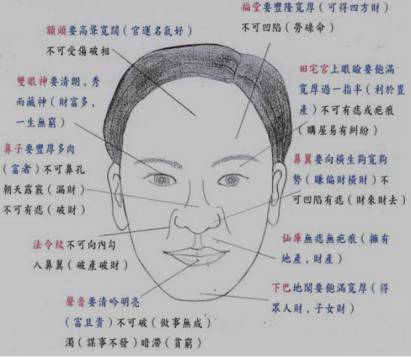 額頭要高聳寬闊（官運名氣好）
不可受傷破相
福堂要豐隆寬厚（可得四方財）
不可凹陷（勞碌命）
雙眼神要清朗，秀
而藏神（財富多，
一生無窮）
田宅宮上眼瞼要飽滿
寬厚過一指半（利於置
產）不可有痣或疤痕
（購屋易有糾紛）
鼻子要豐厚多肉
（富者）不可鼻孔
朝天露竅（漏財）
不可有痣（破財）
鼻翼要向橫生夠寬夠
勢（賺偏財橫財）不
可凹陷有痣（財來財去）
法令紋不可向內勾
入鼻翼（破產破財）
仙庫無痣無疤痕（擁有
地產，財產）
下巴地閣要飽滿寬厚（得
眾人財，子女財）
聲音要清吟明亮
（富且貴）不可破（做事無成）
濁（謀事不發）暗滯（貧窮）